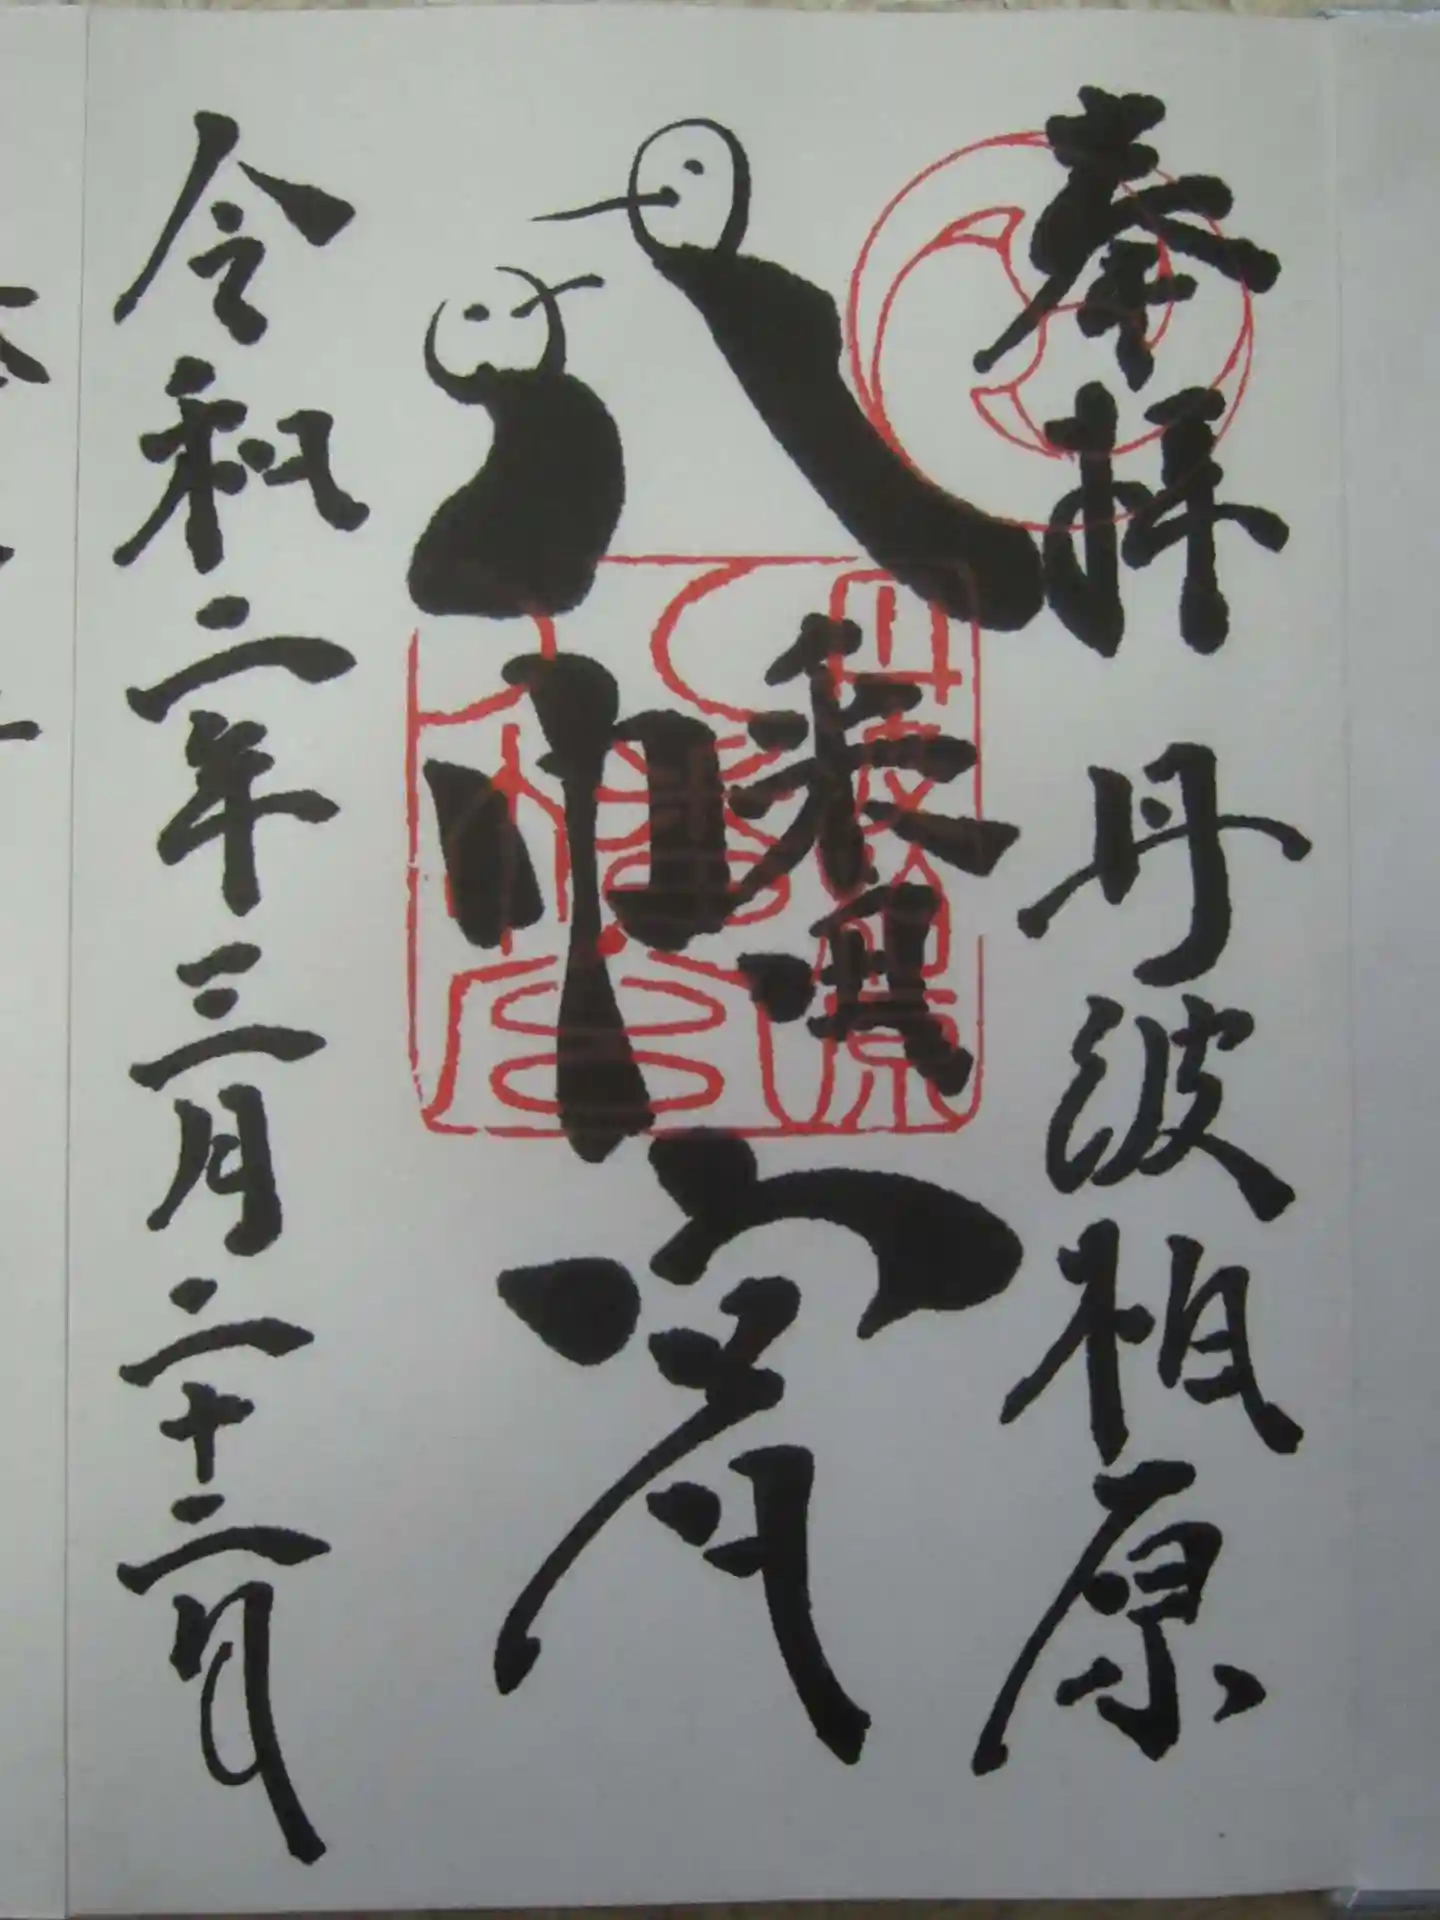 奉拝 丹波柏原
八幡宮
令和二年三月二十二日
丹波柏原
八幡宮